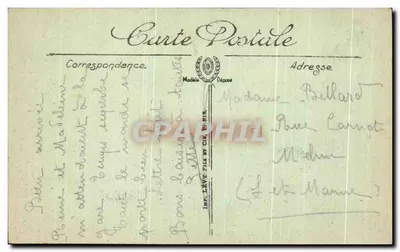 Carte Postale
Correspondance
Adresse
Modèle Déposé
Bien arrivée
René et Madeleine
m'attendaient à la
gare temps superbe
tout le monde se
porte bien
lettre suit
Bons baisers à toutes
IMP. LÉVY FILS ET CIE, PARIS
CPARAMA.COM
Madame Billard
Melun
(S et Marne)